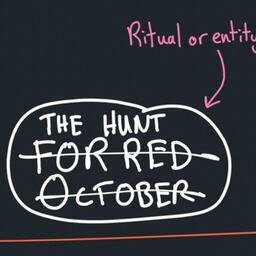 Ritual or entity
THE HUNT
FOR RED
OCTOBER